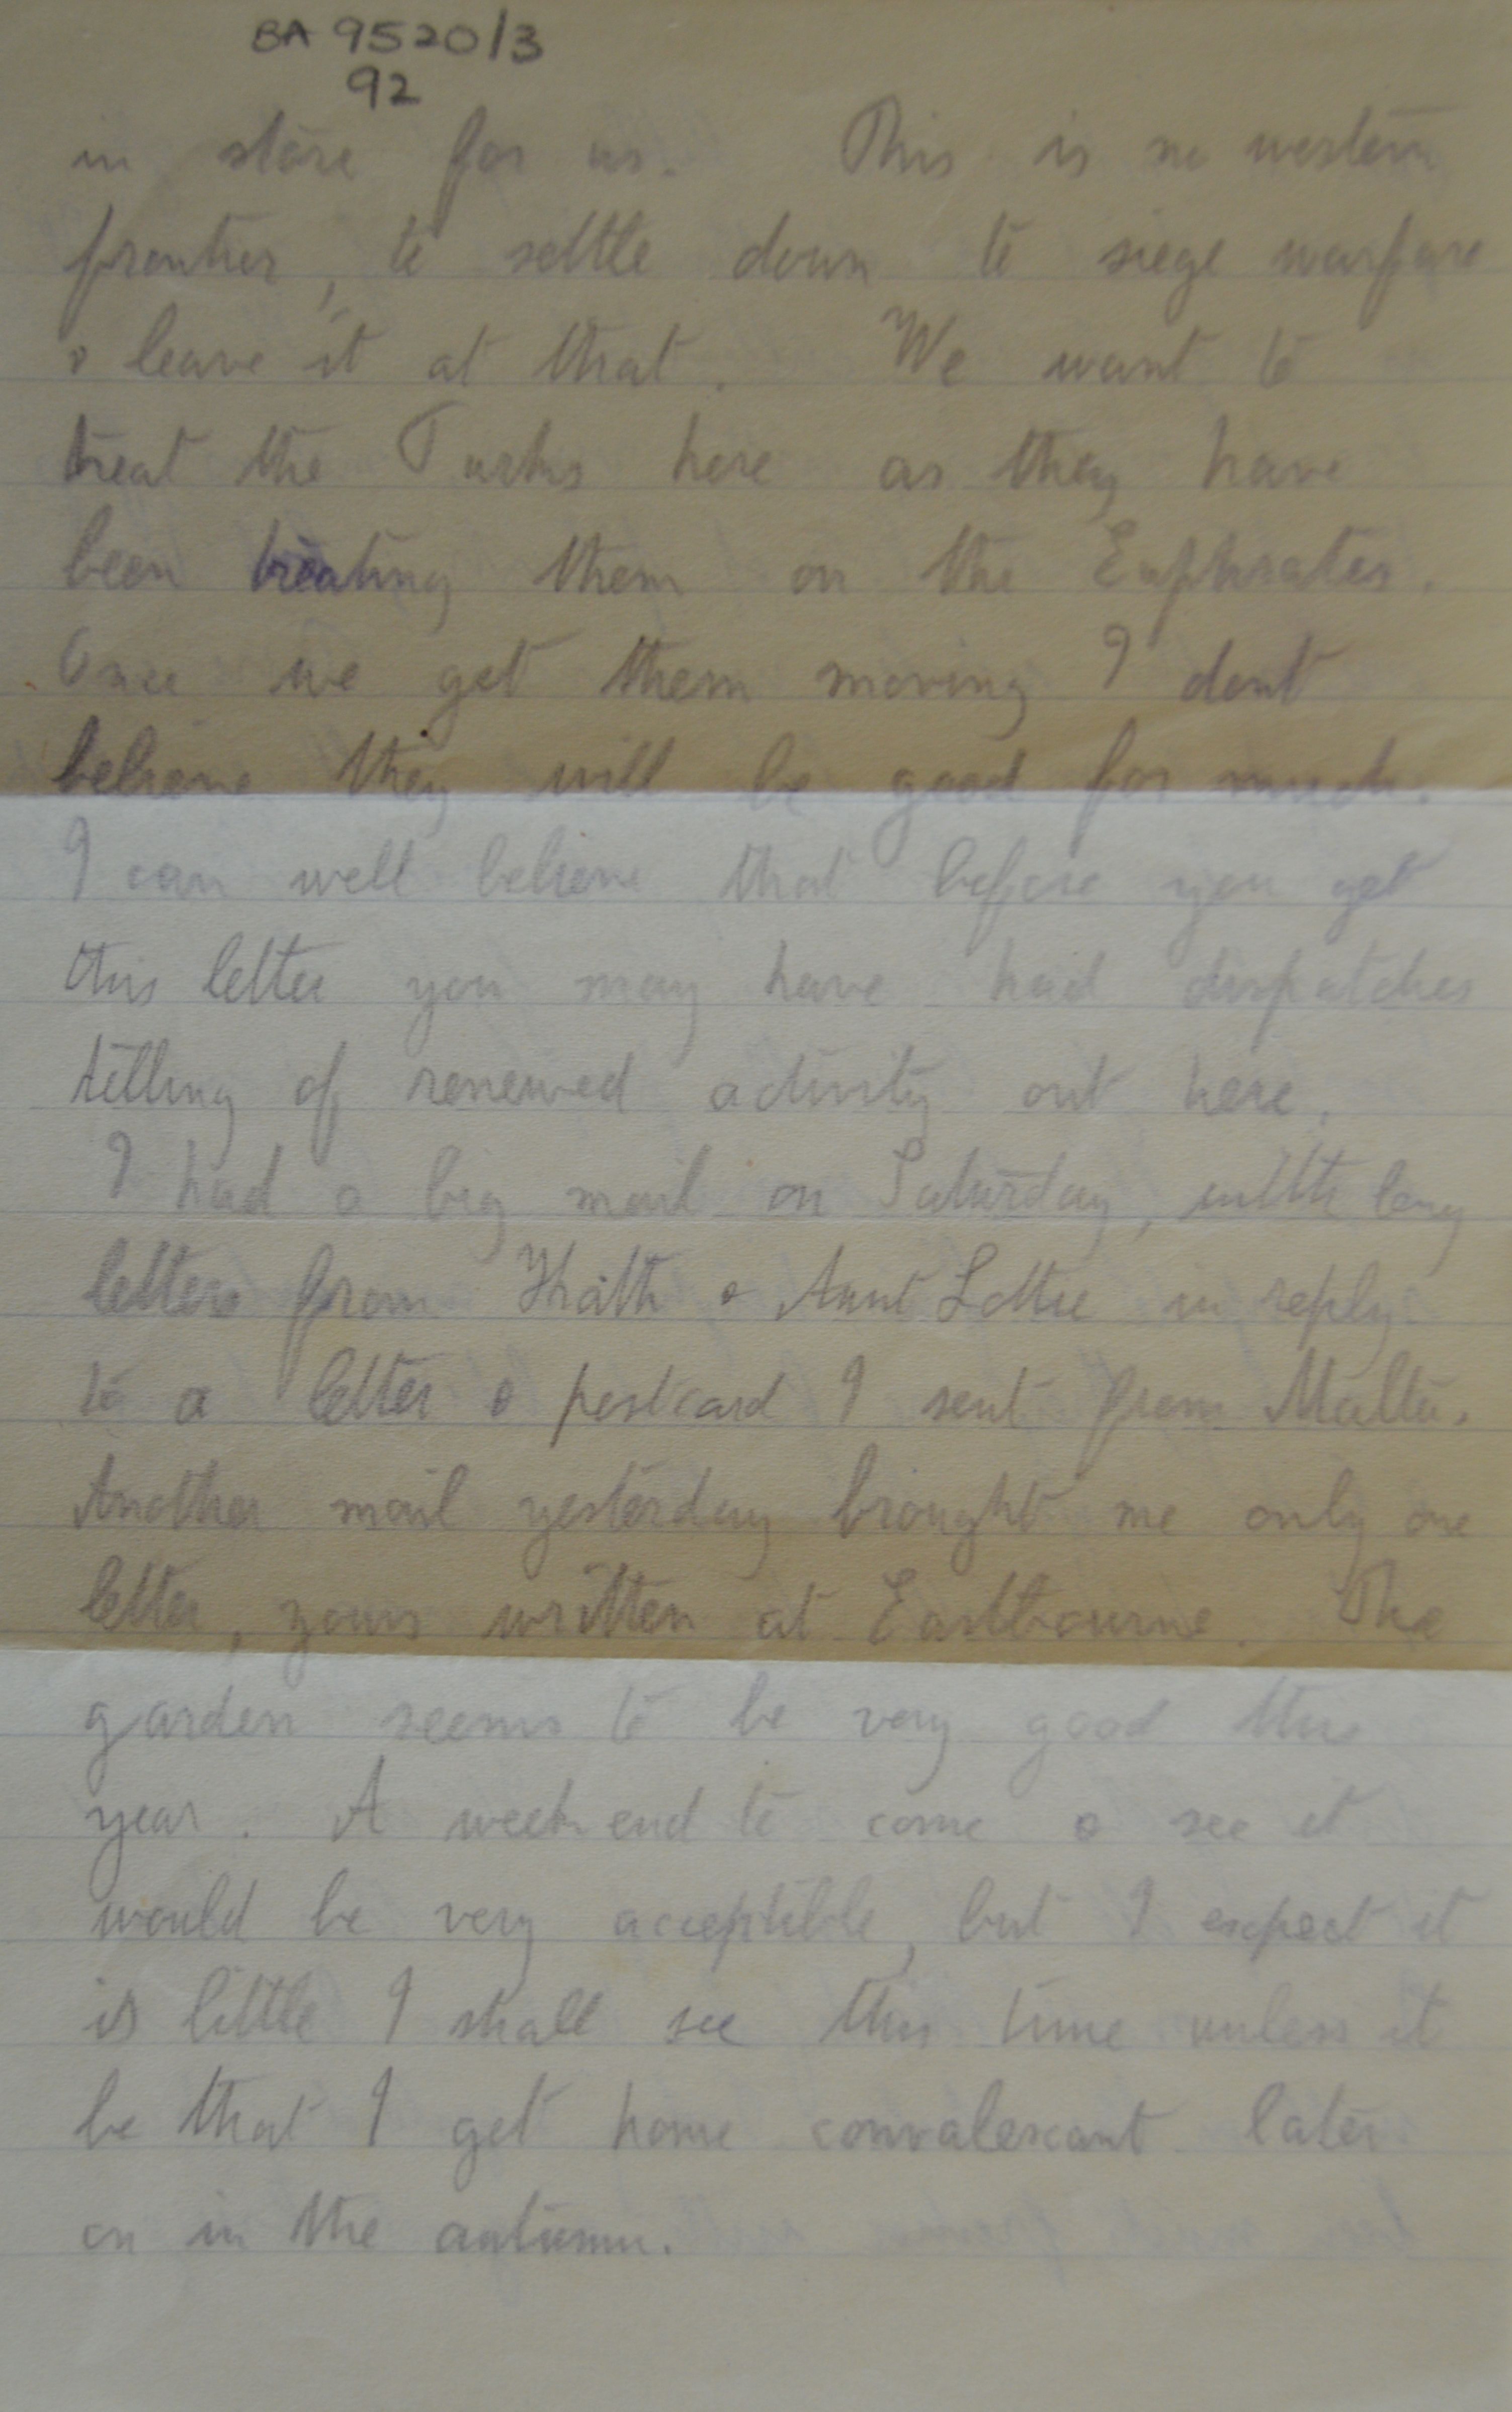 BA 9520/3
92
in store for us. This is no western
frontier, to settle down to siege warfare
& leave it at that. We want to
treat the Turks here as they have
been treating them on the Euphrates.
Once we get them moving I dont
believe they will be good for much.
I can well believe that before you get
this letter you may have had dispatches
telling of renewed activity out here.
I had a big mail on Saturday, with long
letters from Kath & Aunt Lottie in reply
to a letter & postcard I sent from Malta.
Another mail yesterday brought me only one
letter, yours written at Eastbourne. The
garden seems to be very good this
year. A week end to come & see it
would be very acceptible, but I expect it
is little I shall see this time unless it
be that I get home convalescant later
on in the autumn.